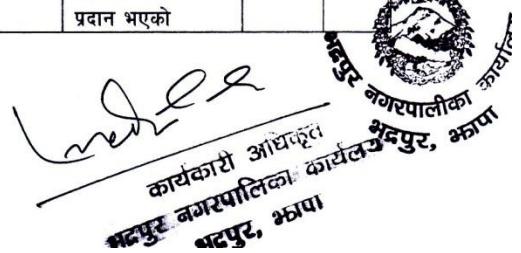 प्रदान भएको
भद्रपुर नगरपालीका कार्यालय
भद्रपुर, झापा
कार्यकारी अधिकृत
भद्रपुर नगरपालिका कार्यलय
भद्रपुर, झापा